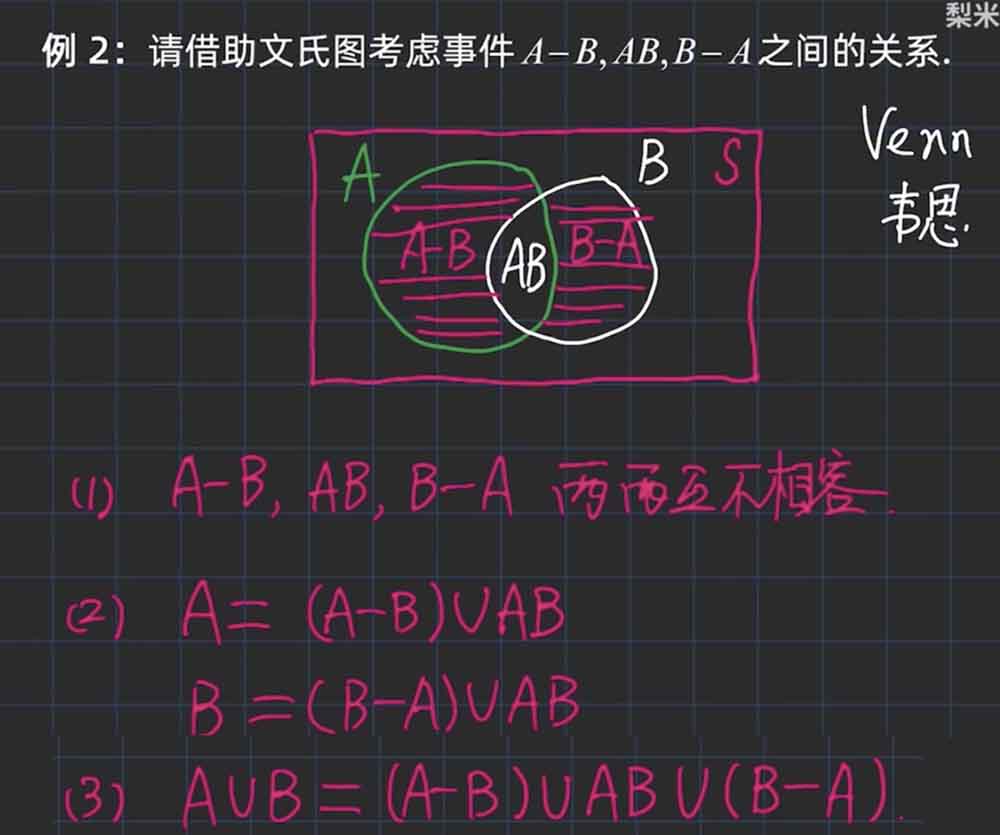 梨米
例 2：请借助文氏图考虑事件 A－B, AB, B－A 之间的关系.
Venn
韦恩.
A
B
S
A-B
AB
B-A
(1) A-B, AB, B-A 两两互不相容.
(2) A= (A-B)∪AB
B =(B-A)∪AB
(3) A∪B = (A-B)∪AB∪(B-A).